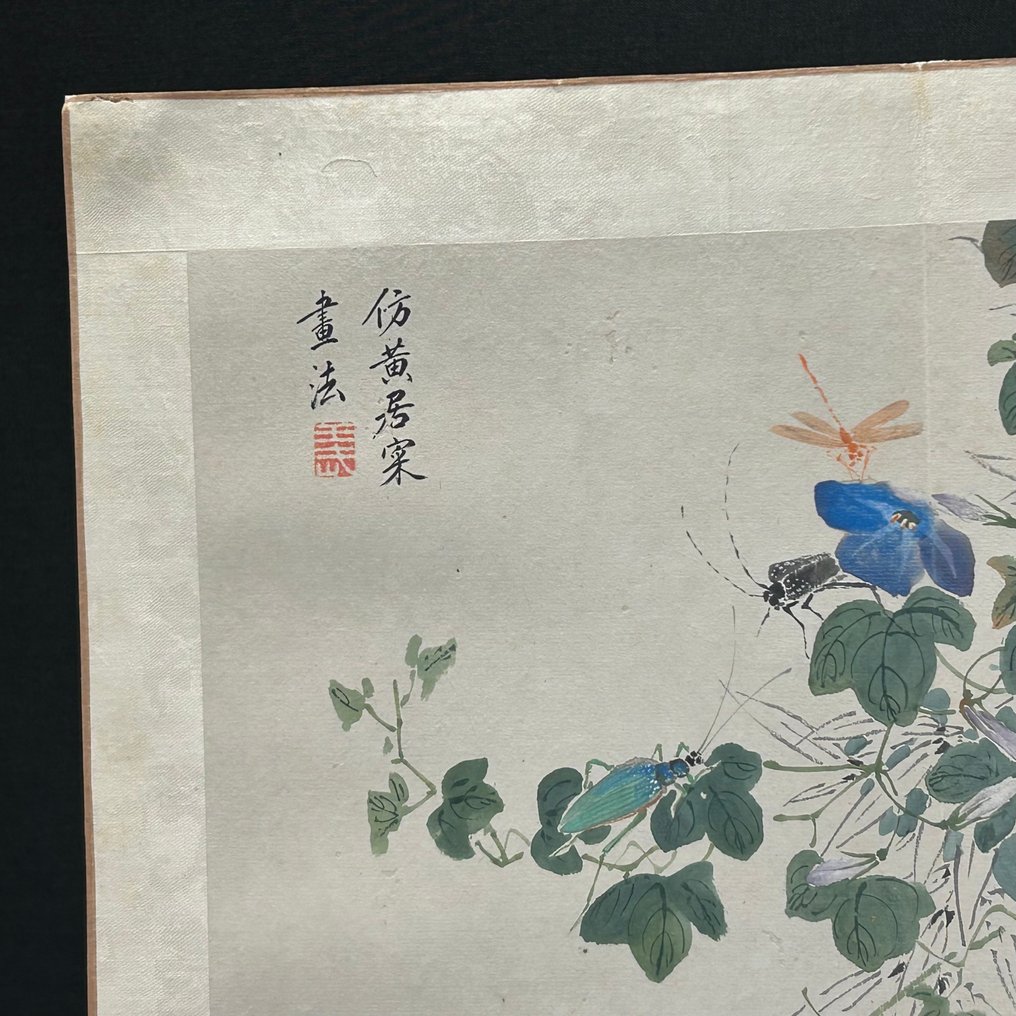 仿黄居寀
畫法